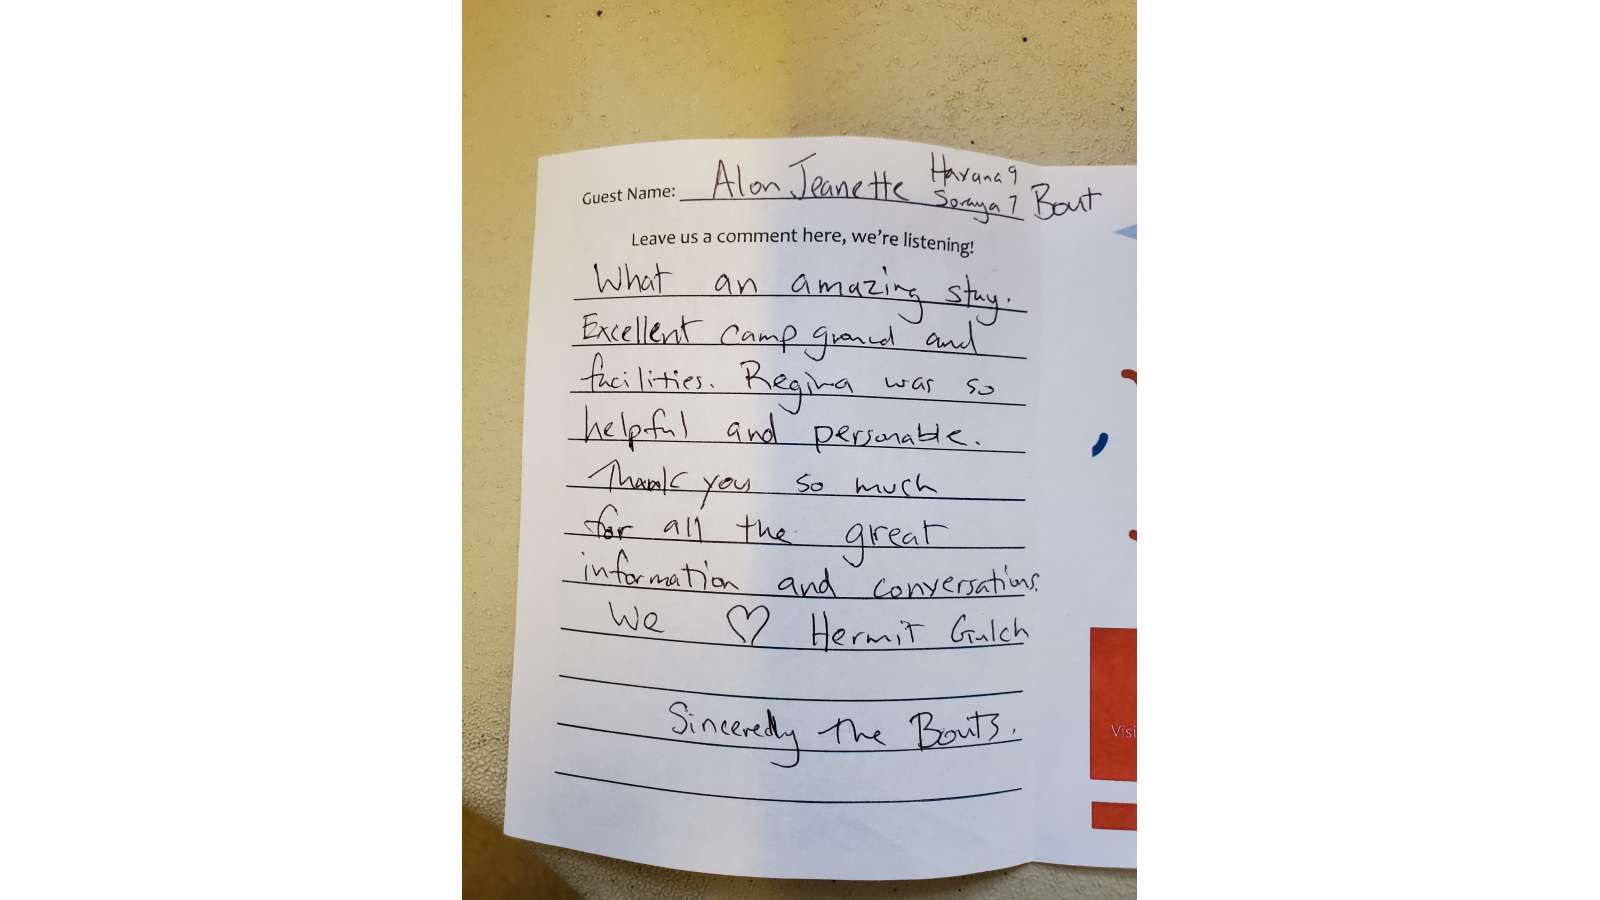 Guest Name: Alon Jeanette Havana 9 Soraya 7 Bout
Leave us a comment here, we're listening!
What an amazing stay.
Excellent camp ground and
facilities. Regina was so
helpful and personable.
Thank you so much
for all the great
information and conversations.
We ♡ Hermit Gulch
Sinceredly The Bouts.
Visi